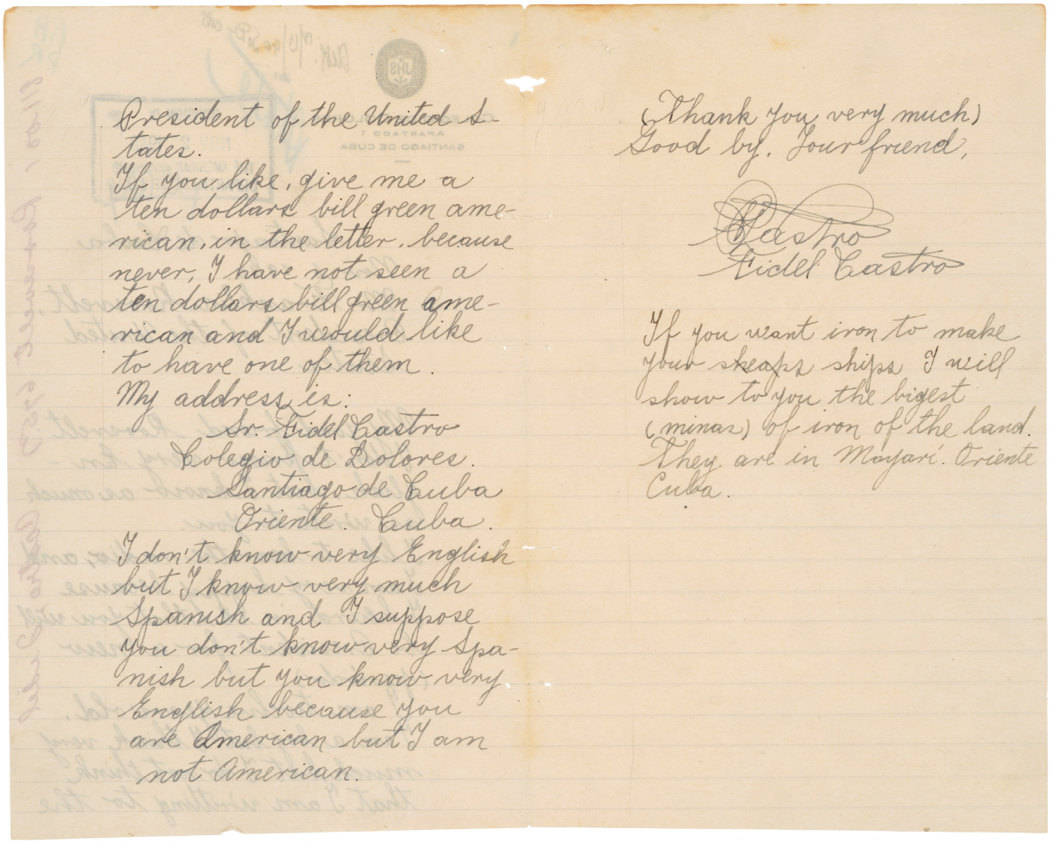 President of the United S-
tates.
If you like, give me a
ten dollars bill green ame-
rican, in the letter, because
never, I have not seen a
ten dollars bill green ame-
rican and I would like
to have one of them.
My address is:
Sr. Fidel Castro
Colegio de Dolores.
Santiago de Cuba
Oriente. Cuba.
I don't know very English
but I know very much
Spanish and I suppose
you don't know very Spa-
nish but you know very
English because you
are American but I am
not American.
(Thank you very much)
Good by. Your friend,
Castro
Fidel Castro
If you want iron to make
your sheaps ships I will
show to you the bigest
(minas) of iron of the land.
They are in Mayarí. Oriente
Cuba.